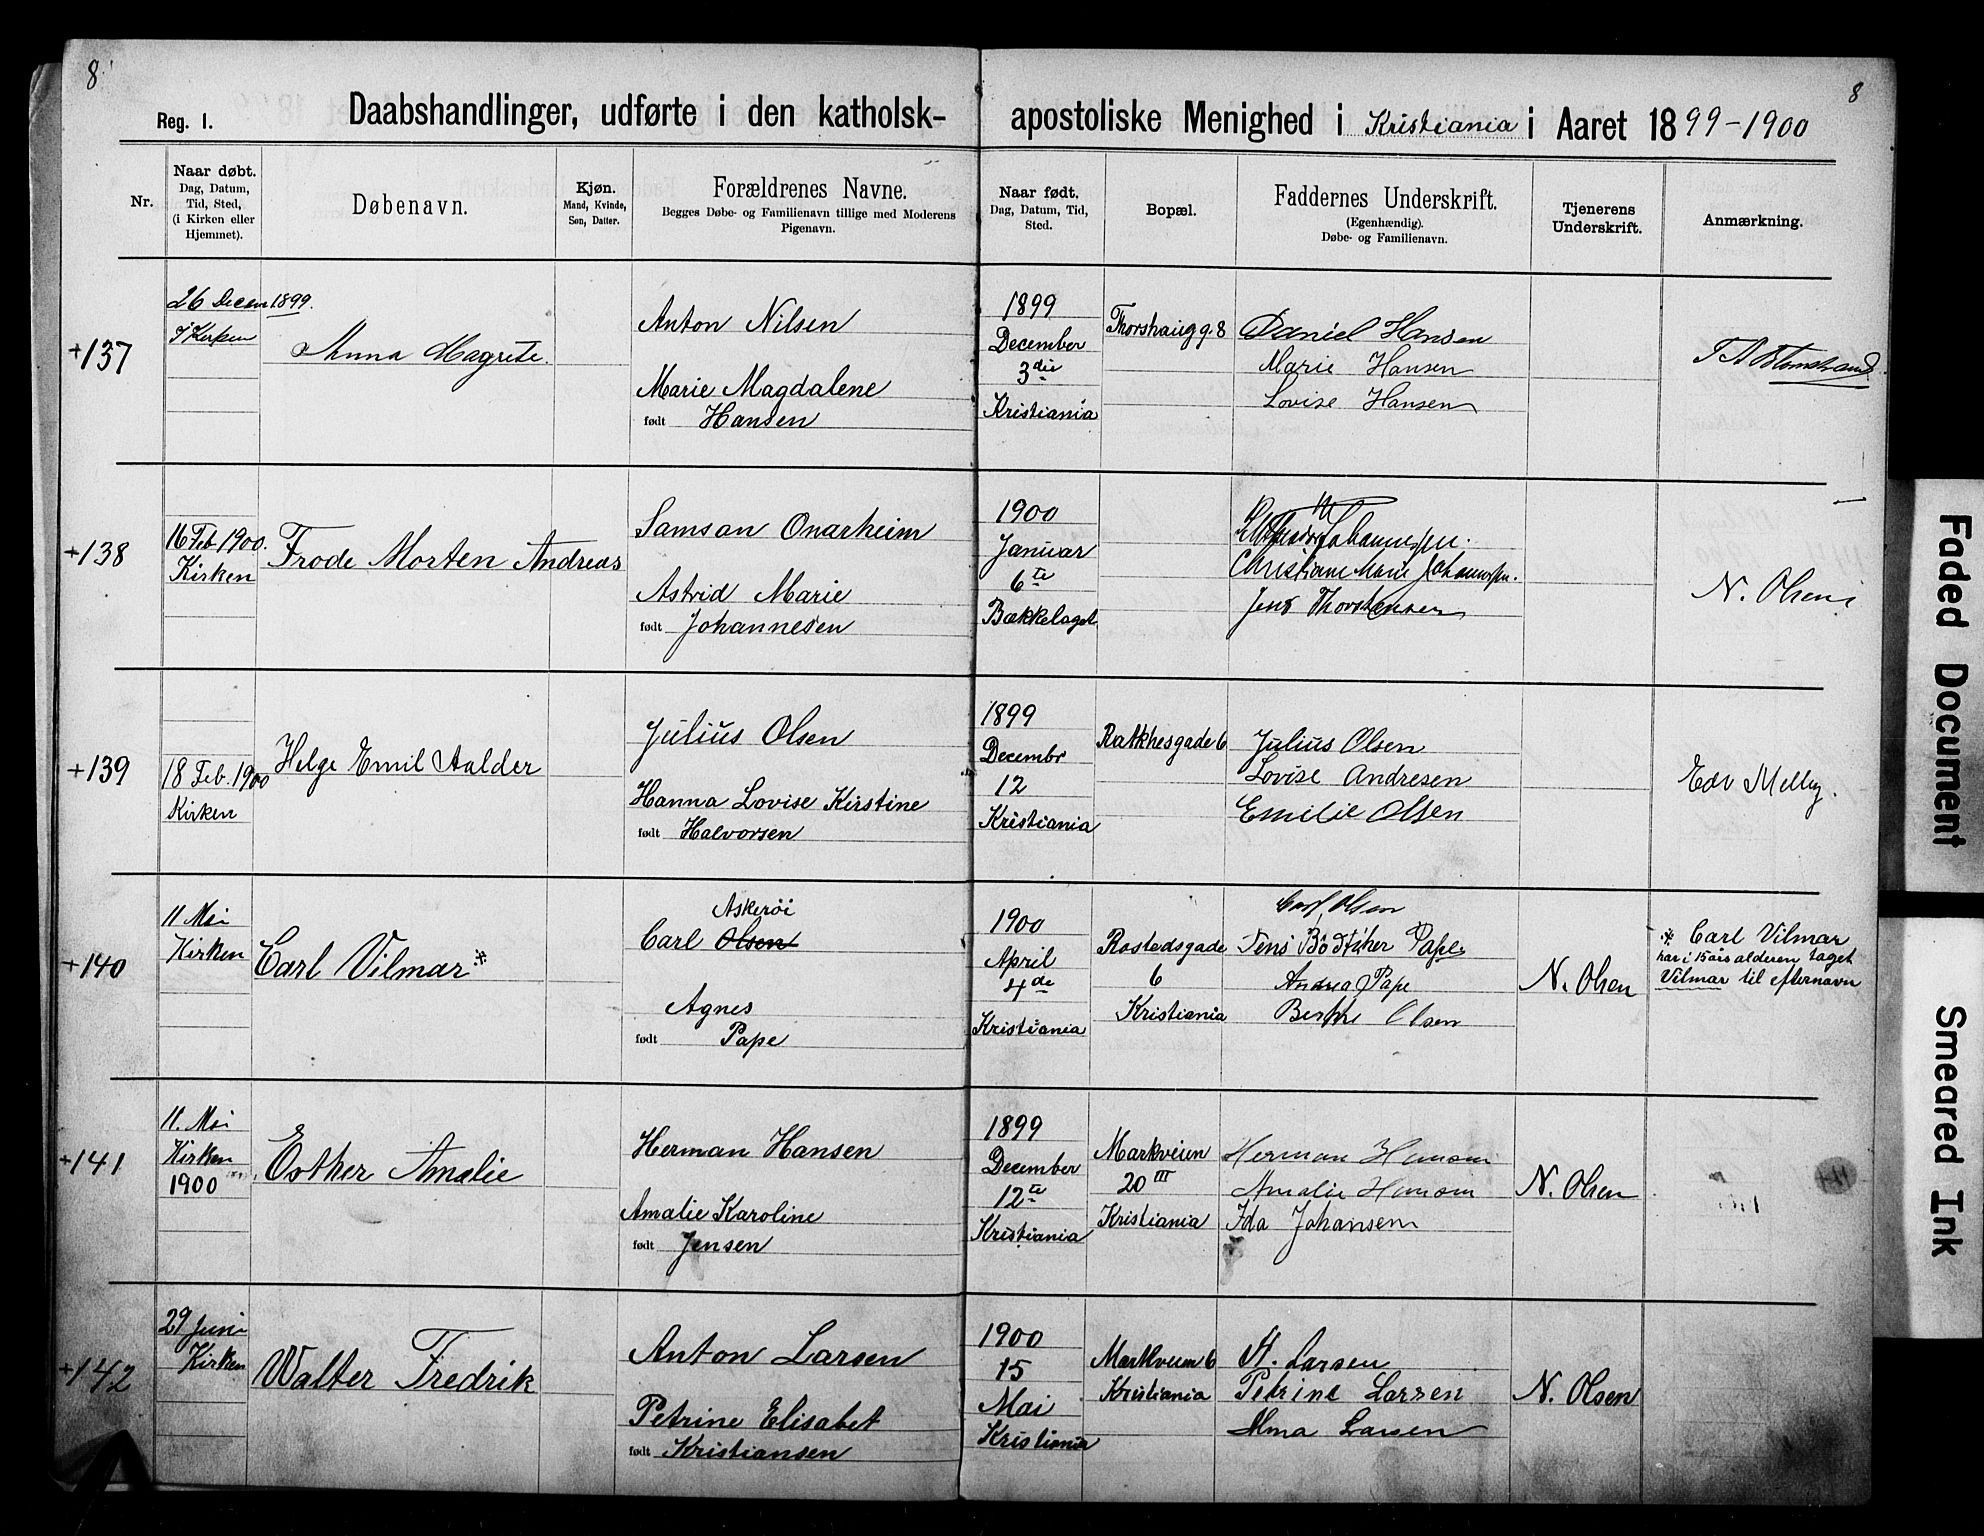 8
8
Daabshandlinger, udførte i den katholsk-apostoliske Menighed i Kristiania i Aaret 1899-1900
Reg. 1.
Nr.
Naar døbt.
Dag, Datum,
Tid, Sted,
(i Kirken eller
Hjemmet).
Døbenavn.
Kjøn.
Mand, Kvinde,
Søn, Datter.
Forældrenes Navne.
Begges Døbe- og Familienavn tillige med Moderens
Pigenavn.
Naar født.
Dag, Datum, Tid,
Sted.
Bopæl.
Faddernes Underskrift.
(Egenhændig).
Døbe- og Familienavn.
Tjenerens
Underskrift.
Anmærkning.
+137
26 Decem 1899.
i Kirken
Anna Magrete.
Anton Nilsen
Marie Magdalene
født Hansen
1899
December
3die
Kristiania
Thorshaugg. 8
Daniel Hansen
Marie Hansen
Lovise Hansen
+138
16 Feb 1900.
Kirken
Frode Morten Andreas
Samson Onarheim
Astrid Marie
født Johannesen
1900
Januar
6te
Bækkelaget
Johannessen.
Christiane Marie Johannessen.
Jens Thorstensen
N. Olsen
+139
18 Feb. 1900
Kirken
Helge Emil Aalder
Julius Olsen
Hanna Lovise Kirstine
født Halvorsen
1899
Decembr
12
Kristiania
Ratkhesgade 6
Julius Olsen
Lovise Andresen
Emilie Olsen
Edv Melby.
+140
11 Mai
Kirken
Carl Vilmar*
Askerøi
Carl Olsen
Agnes
født Pape
1900
April
4de
Kristiania
Rostedsgade
6
Kristiania
Carl Olsen
Jens Bødtker Pape
Andrea Pape
Berthe Olsen
N. Olsen
* Carl Vilmar
har i 15 års alderen taget
Vilmar til efternavn
+141
11. Mai
Kirken
1900
Esther Amalie
Herman Hansen
Amalie Karoline
født Jensen
1899
December
12te
Kristiania
Markveien
20 III
Kristiania
Herman Hansen
Amalie Hansen
Ida Johansen
N. Olsen
+142
29 Juni
Kirken
Walter Fredrik
Anton Larsen
Petrine Elisabet
født Kristiansen
1900
15
Mai
Kristiania
Markveien 6
Kristiania
A. Larsen
Petrine Larsen
Alma Larsen
N. Olsen
Faded Document
Smeared Ink